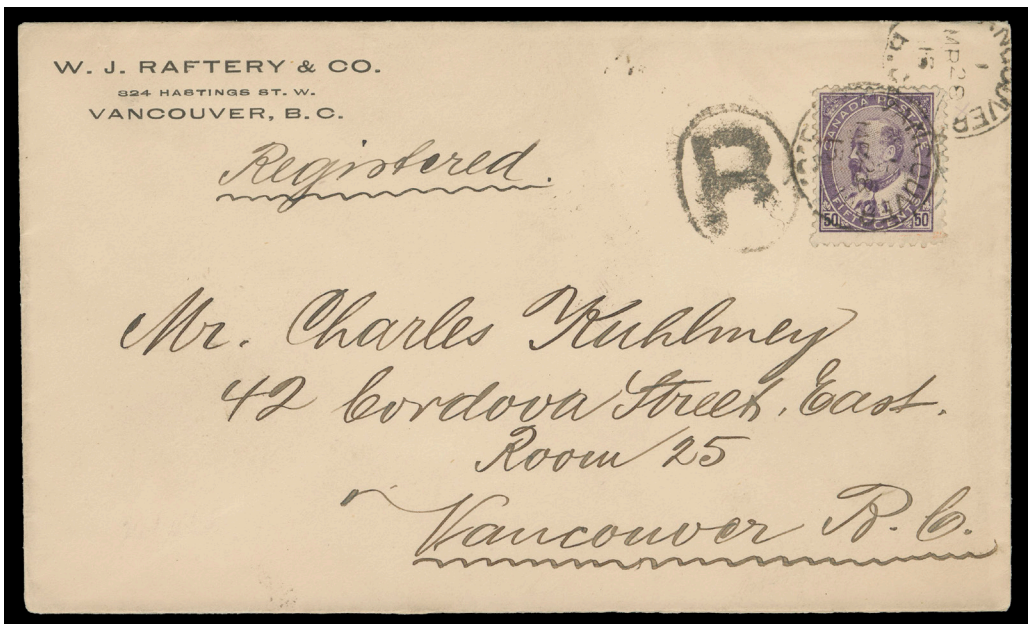 W. J. RAFTERY & CO.
324 HASTINGS ST. W.
VANCOUVER, B.C.
Registered.
R
VANCOUVER
1
MR 28
15
CANADA POSTAGE
50 FIFTY CENTS 50
Mr. Charles Kuhlmey
42 Cordova Street, East.
Room 25
Vancouver B.C.